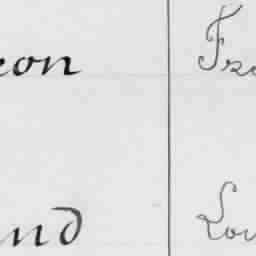 eon Fra
and Lou